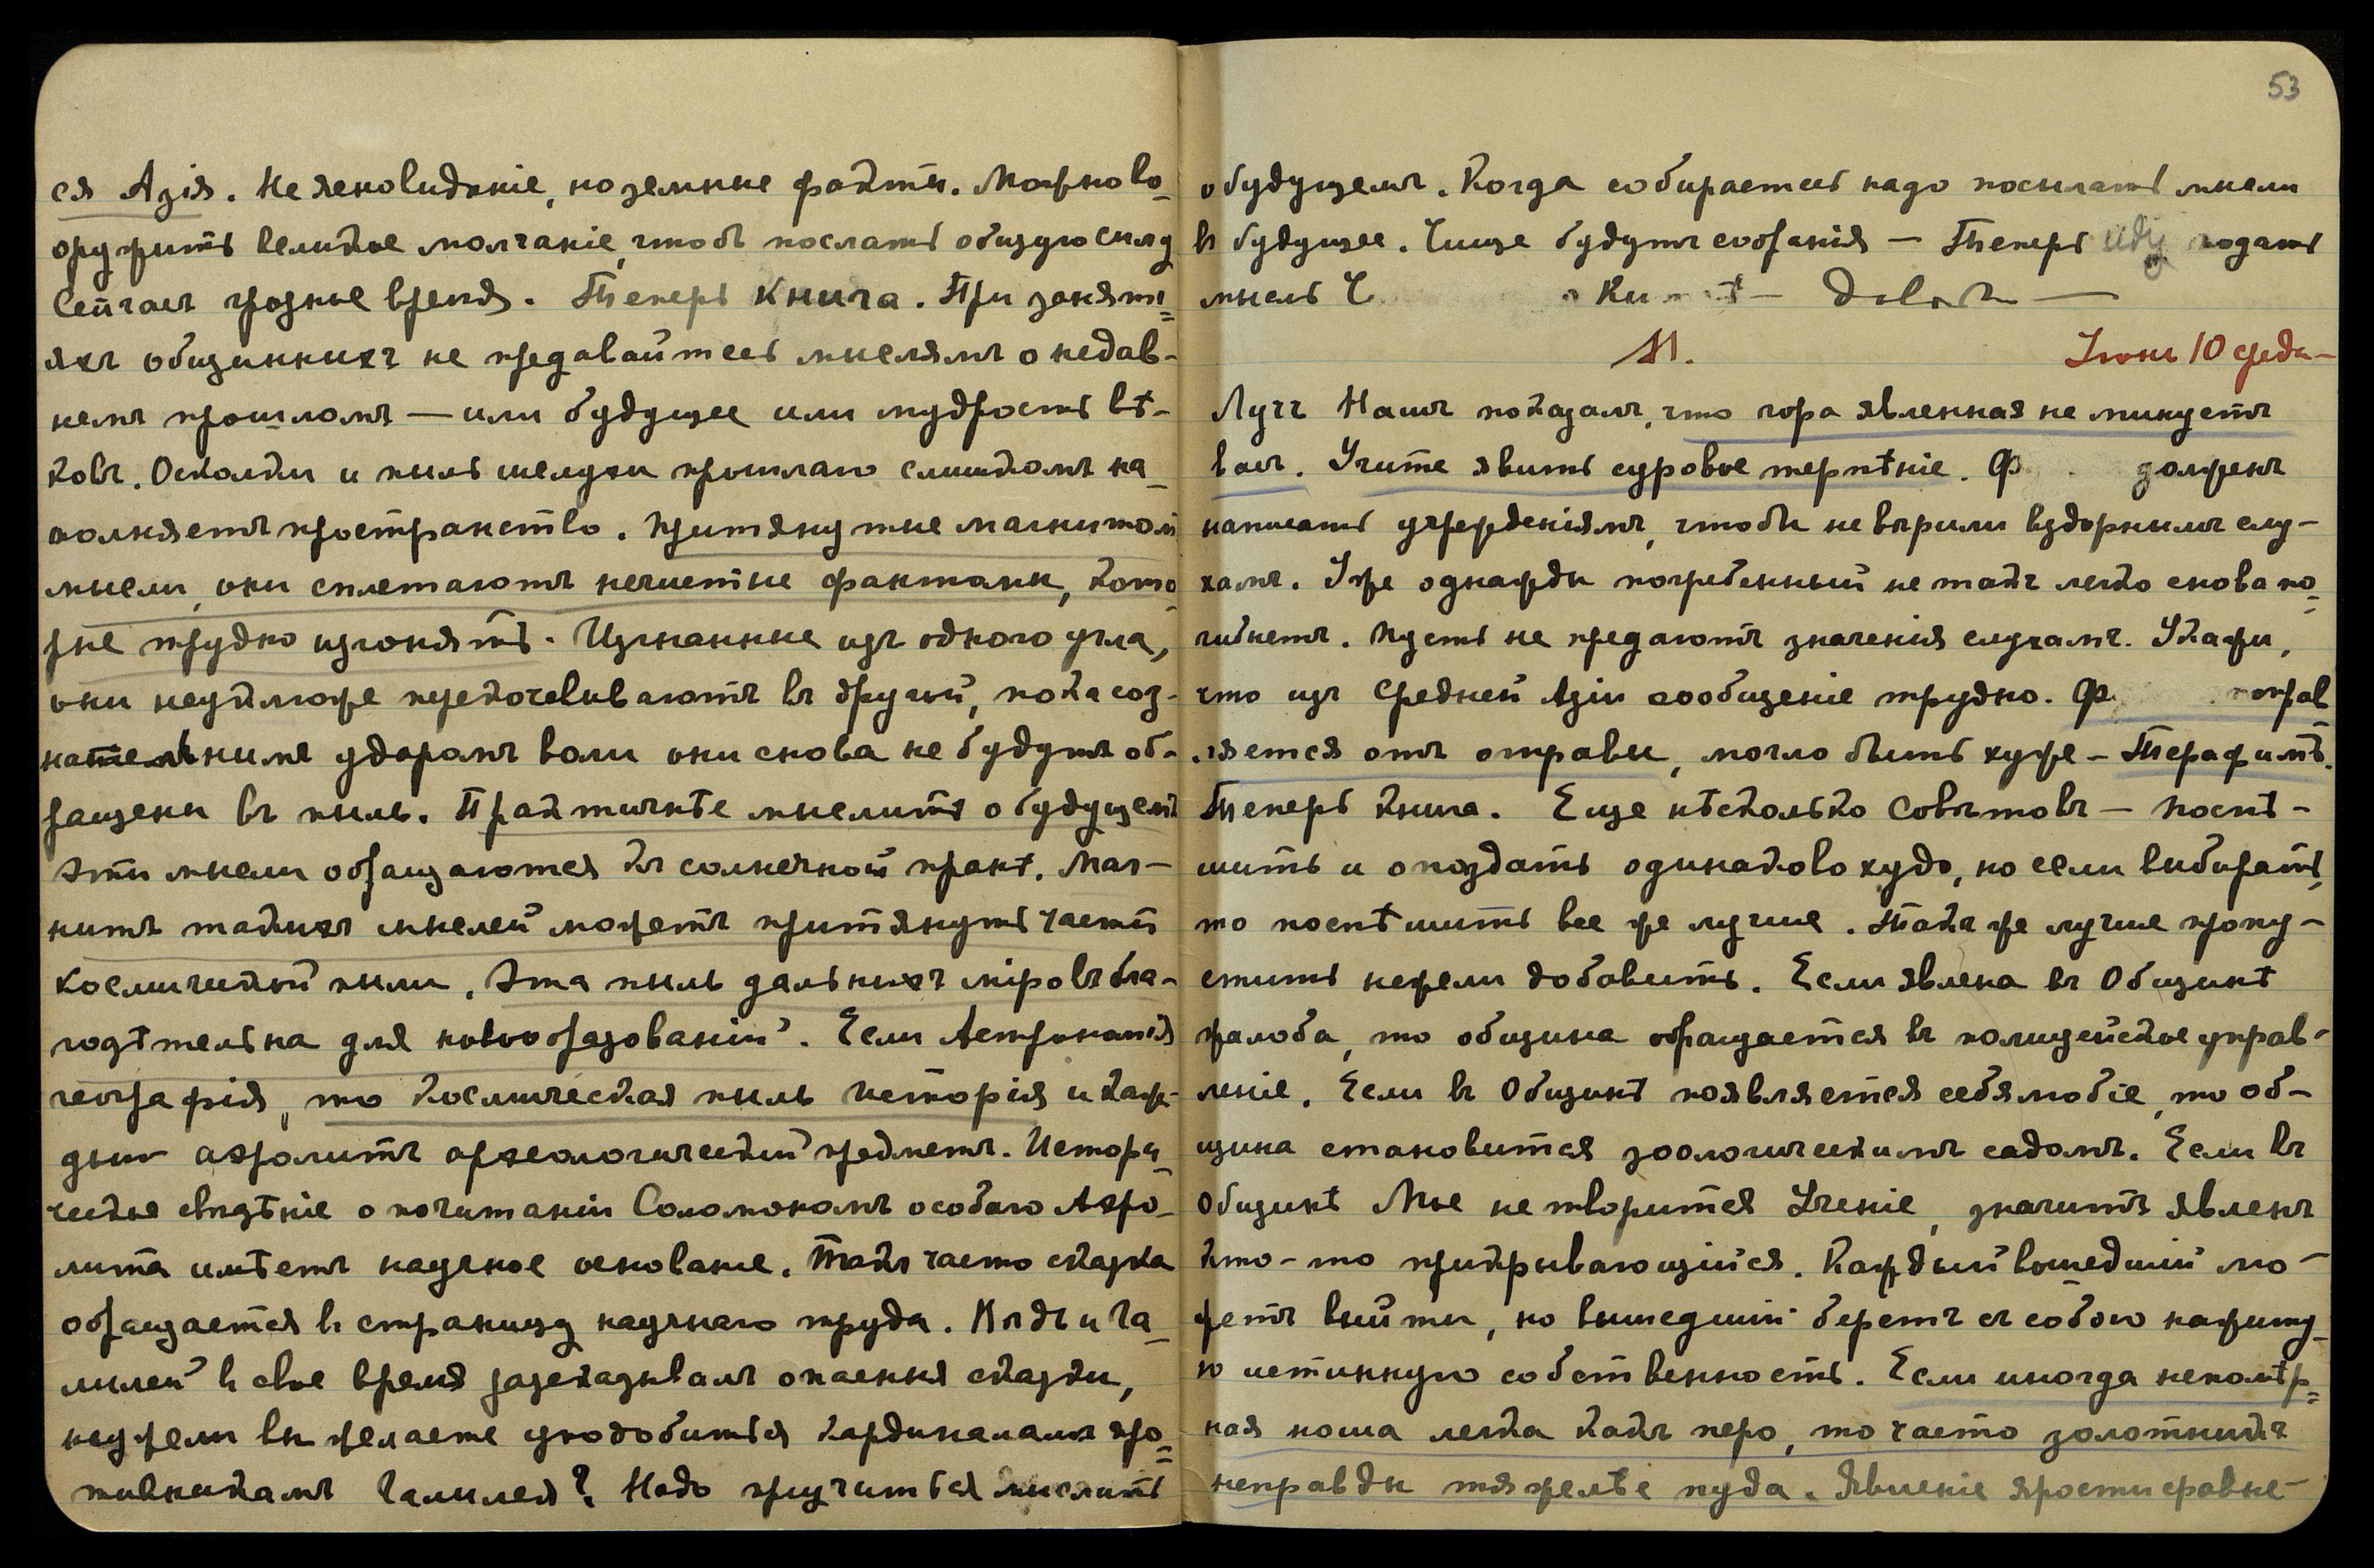 ся Азія. Не ясновидѣніе, но земные факты. Можно во-
оружить великое молчаніе, чтобъ послать общую силу
Сейчасъ грозное время. Теперь Книга. При заняті=
яхъ общинныхъ не предавайтесь мыслямъ о недав-
немъ прошломъ — или будущее или мудрость вѣ-
ковъ. Осколки и пыль шелухи прошлаго слишкомъ на-
полняетъ пространство. Притянутые магнитомъ
мысли, они сплетаютъ нечистые фантомы, кото-
рые трудно изгонять. Изгнанные изъ одного угла,
они неуклюже перекочевываютъ въ другой, пока соз-
нательнымъ ударомъ воли они снова не будутъ об-
ращены въ пыль. Практичнѣе мыслить о будущемъ
Эти мысли обращаются къ солнечной пранѣ. Маг-
нитъ такихъ мыслей можетъ притянуть части
космической пыли. Эта пыль дальнихъ міровъ бла-
годѣтельна для новообразованій. Если Астрономія
географія, то космическая пыль исторія и каж-
дый аэролитъ археологическій предметъ. Истори-
ческое свѣдѣніе о почитаніи Соломономъ особаго Аэро-
лита имѣетъ научное основаніе. Такъ часто сказка
обращается въ страницу научнаго труда. Вѣдь и Га-
лилей въ свое время разсказывалъ опасныя сказки,
неужели вы желаете уподобиться кардиналамъ про=
тивникамъ Галилея? Надо пріучиться мыслить
53
о будущемъ. Когда собираетесь надо посылать мысли
въ будущее. Чище будутъ собранія — Теперь иду подать
мысль Ч
М.
Іюнь 10 среда—
Лучъ Нашъ показалъ, что гора явленная не минуетъ
васъ. Учите явить суровое терпѣніе. Ф долженъ
написать учрежденіямъ, чтобы не вѣрили вздорнымъ слу-
хамъ. Уже однажды погребенный не такъ легко снова по=
гибнетъ. Пусть не предаютъ значенія слухамъ. Укажи,
что изъ Средней Азіи сообщеніе трудно. Ф. поправ
ляется отъ отравы, могло быть хуже — Терафимъ.
Теперь книга. Еще нѣсколько Совѣтовъ — Поспѣ-
шить и опоздать одинаково худо, но если выбирать,
то поспѣшить все же лучше. Такъ же лучше пропу-
стить нежели добавить. Если явлена въ Общинѣ
жалоба, то община обращается въ полицейское управ-
леніе. Если въ Общинѣ появляется себялюбіе, то об-
щина становится зоологическимъ садомъ. Если въ
Общинѣ Мое не творится Ученіе, значитъ явленъ
кто-то прикрывающійся. Каждый вошедшій мо-
жетъ выйти, но вышедшій беретъ съ собою нажиту-
ю истинную собственность. Если иногда непомѣр=
ная ноша легка какъ перо, то часто золотникъ
неправды тяжелѣе пуда. Явленіе ярости сравне-